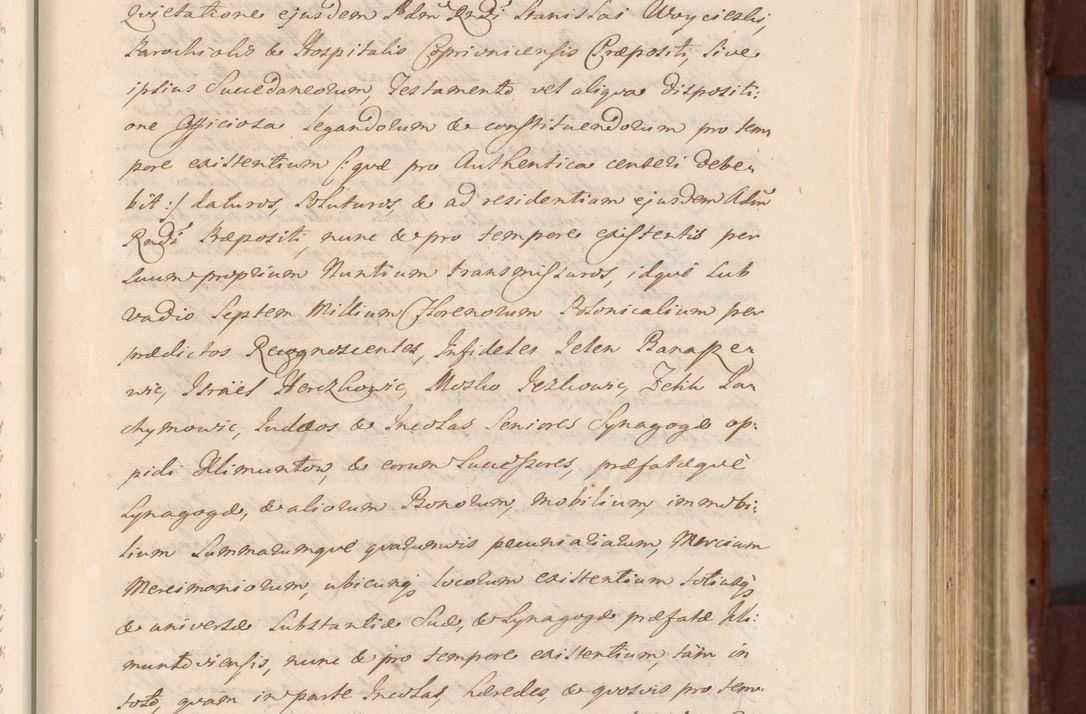 Qvietatione ejusdem Adm̃ Rndi Stanislai Woycieski,
Parochialis & Hospitalis Coprivnicensis Præpositi, sive
ipsius Succedaneorum, Testamento vel aliqva dispositi:
one Officiosa Legandorum & constituendorum pro tem
pore existentium (: qvæ pro Authentica censeri debe
bit :) daturos, Soluturos, & ad residentiam ejusdem Adm̃
Rndi Præpositi, nunc & pro tempore existentis per
suum proprium Nuntium transmissuros, idqvè sub
vadio Septem Millium Florenorum Polonicalium per
prædictos Recognoscentes, Infideles Jelen
wic, Israël Herczkowic, Mosko Jezkowic, Zelik
chymowic, Judæos & Incolas Seniores Synagogæ op:
pidi Klimuntow, & eorum Successores, præfatæqvè
Synagogæ, & aliorum Bonorum, mobilium, immobi:
lium Summarumqvè qvarumvis pecuniariarum, Mercium
Mercimoniorum, ubicunq̃ locorum existentium totiusq̃
& universæ Substantiæ Suæ, & Synagogæ præfatæ Kli:
muntoviensis, nunc & pro tempore existentium, tàm in
toto, qvam in parte Incolas, hæredes, & qvosvis pro tem